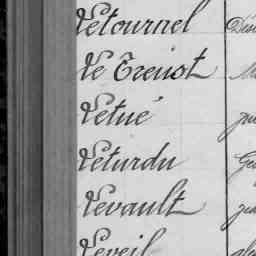 Letournel
Le Treust
Letué
Leturdu
Levault
Leveil